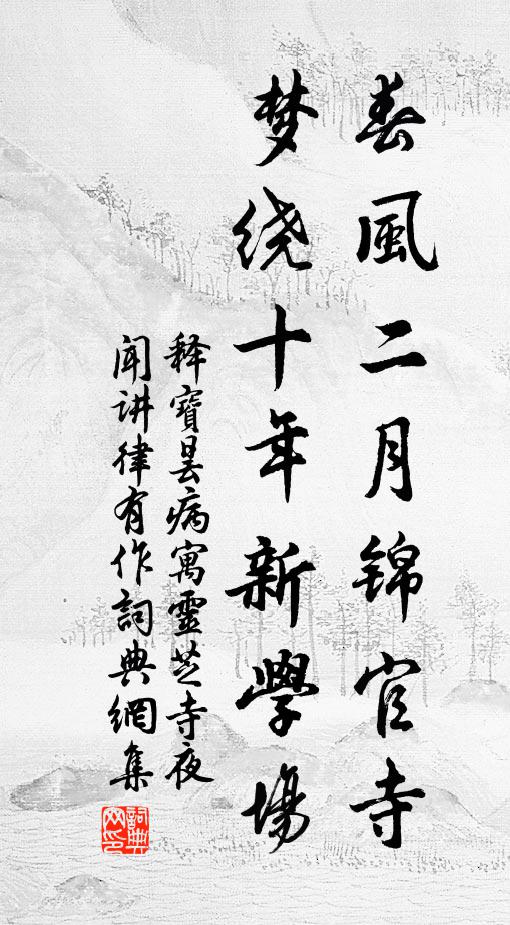 春風二月锦官寺
梦绕十年新學場
释寶曇病寓靈芝寺夜
闻讲律有作詞典網集
詞典
网印